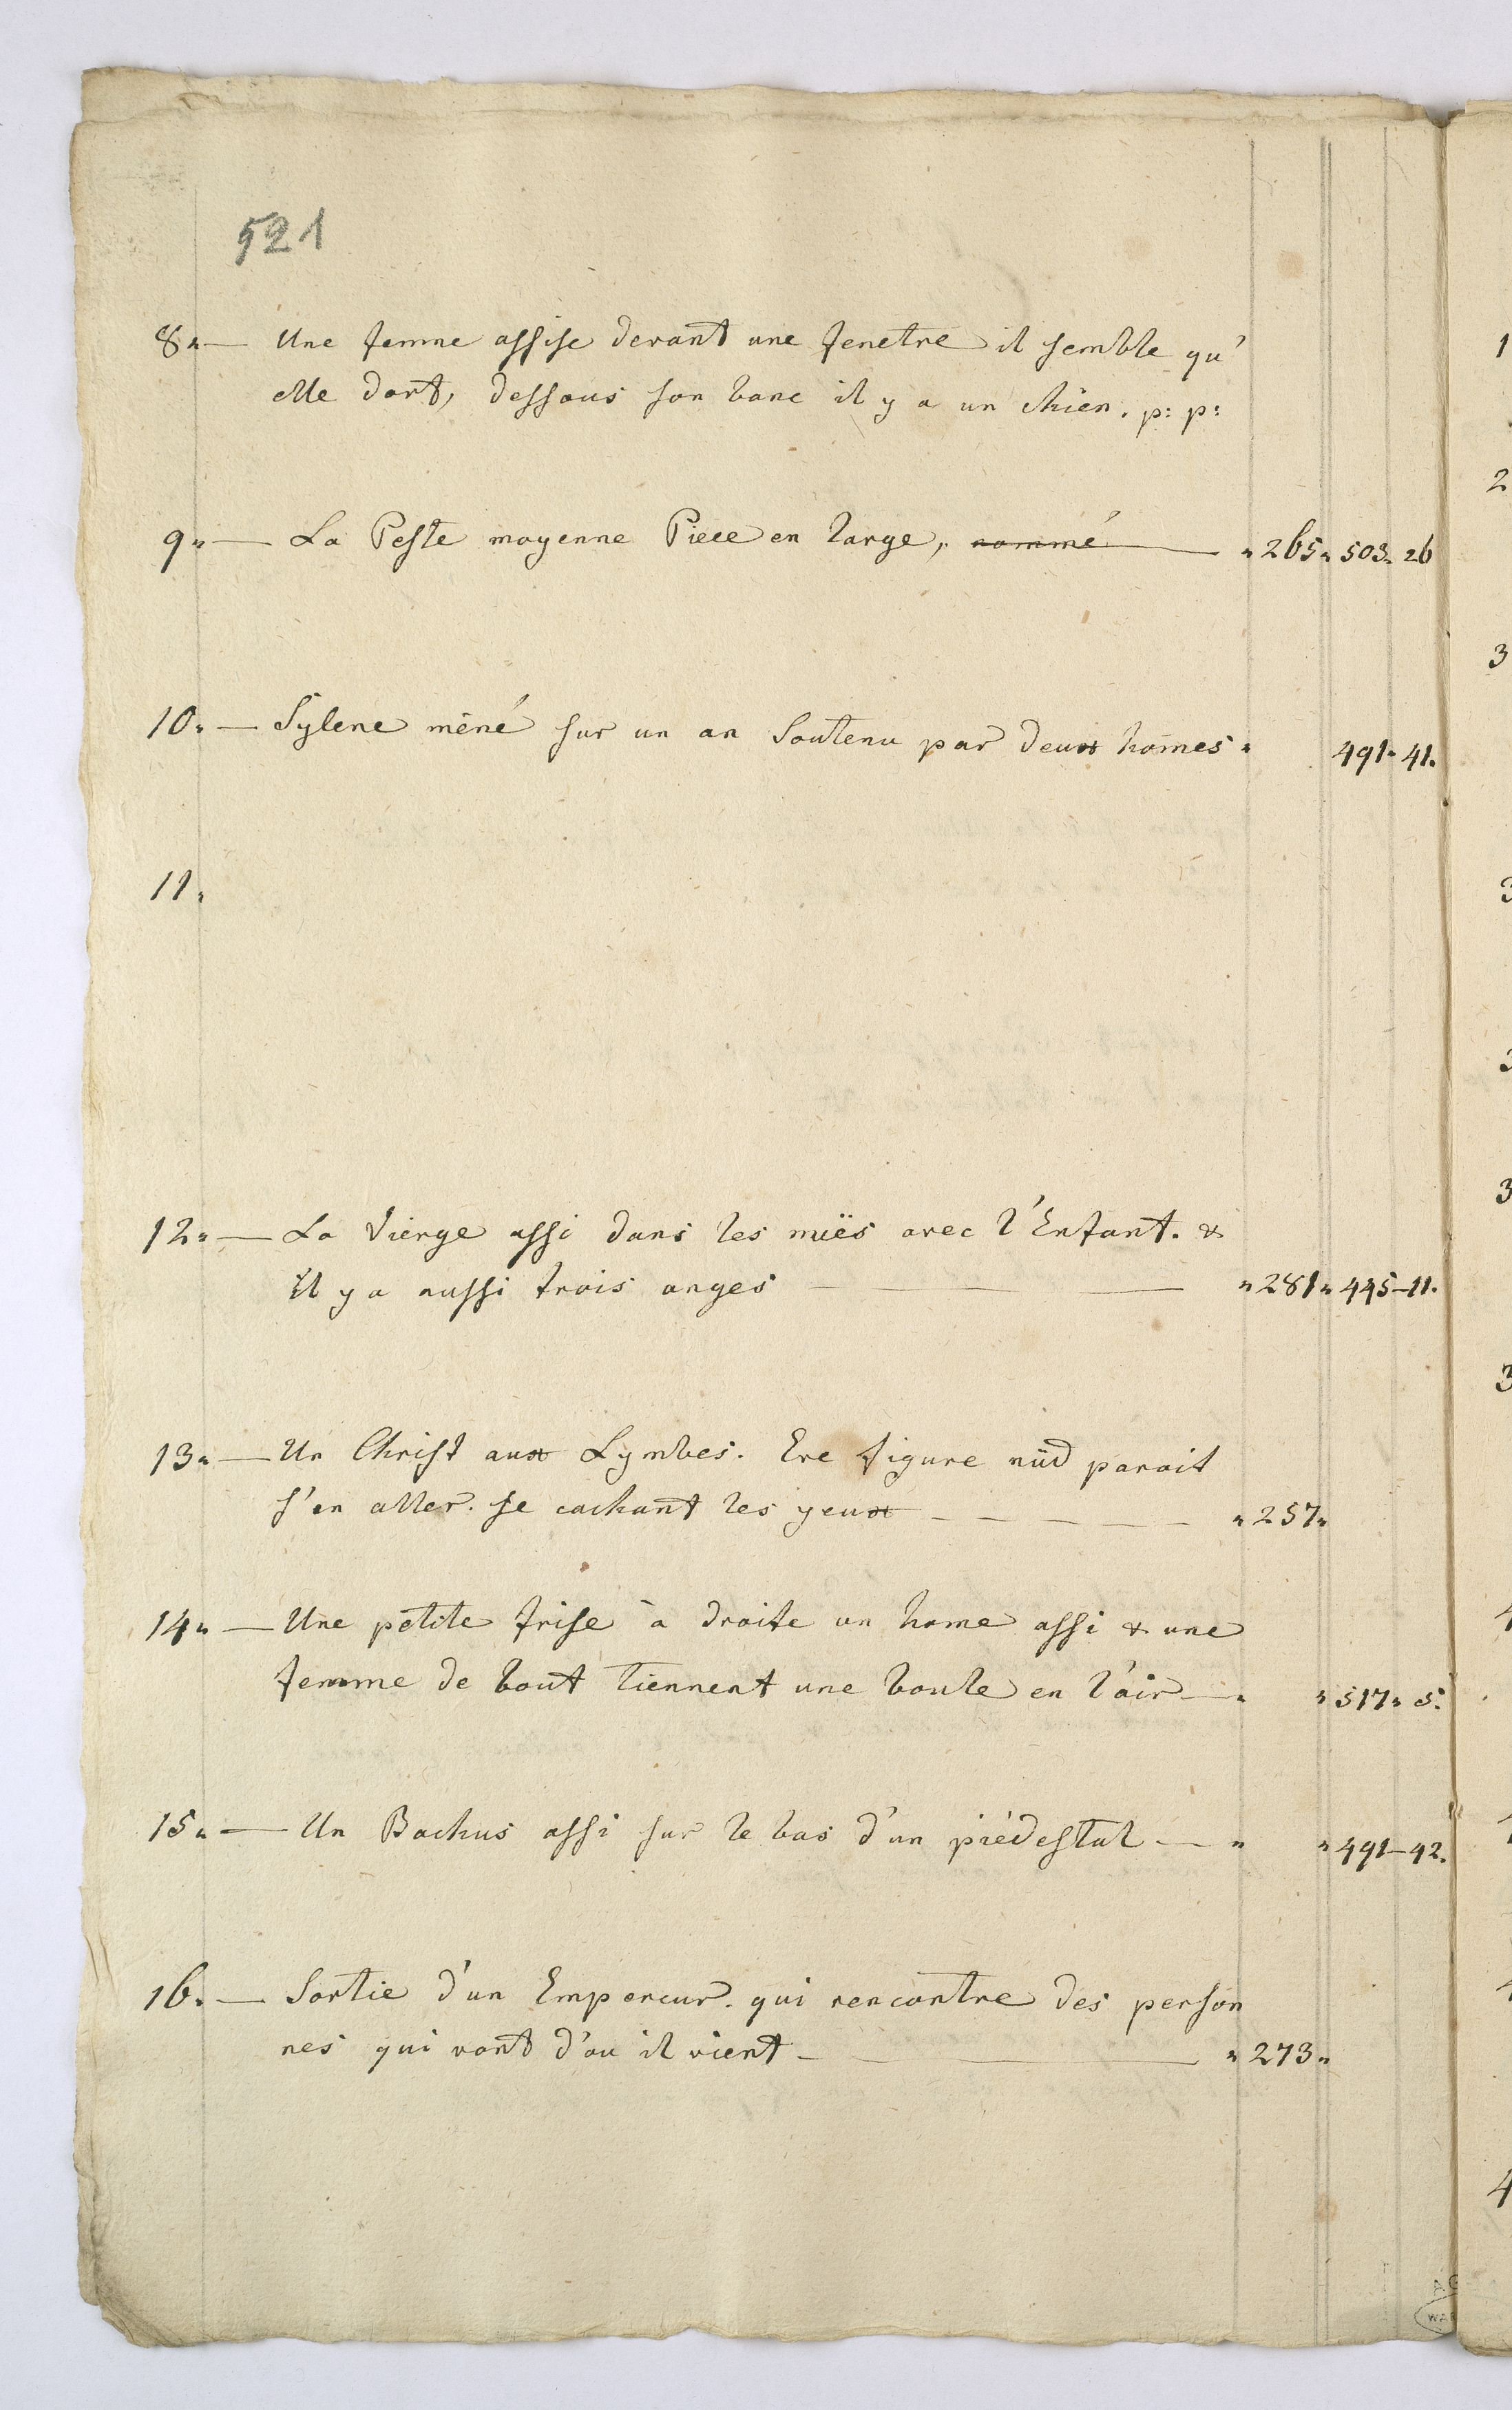 521
8„ — Une femme assise devant une fenetre il semble qu'
elle dort, dessous son banc il y a un chien. p: p:
9„ — La Peste moyenne Piece en large, nommé — „ 265„ 503„ 26
10„ — Sylene méné sur un an Soutenu par deux homes „ 491„ 41.
11„
12„ — La Vierge assi dans les nüës avec l'Enfant. &
il y a aussi trois anges — „ 281„ 445–11.
13„ — Un Christ aux Lymbes. Eve figure nüd paroit
s'en aller. se cachant les yeux — „ 257„
14„ — Une petite frise à droite un home assi & une
femme de bout tiennent une boule en l'air — „ „ 517„ 5.
15„ — Un Bachus assi sur le bas d'un piédestal — „ „ 491–42.
16„ — Sortie d'un Empereur. qui rencontre des person
nes qui vont d'ou il vient — „ 273„